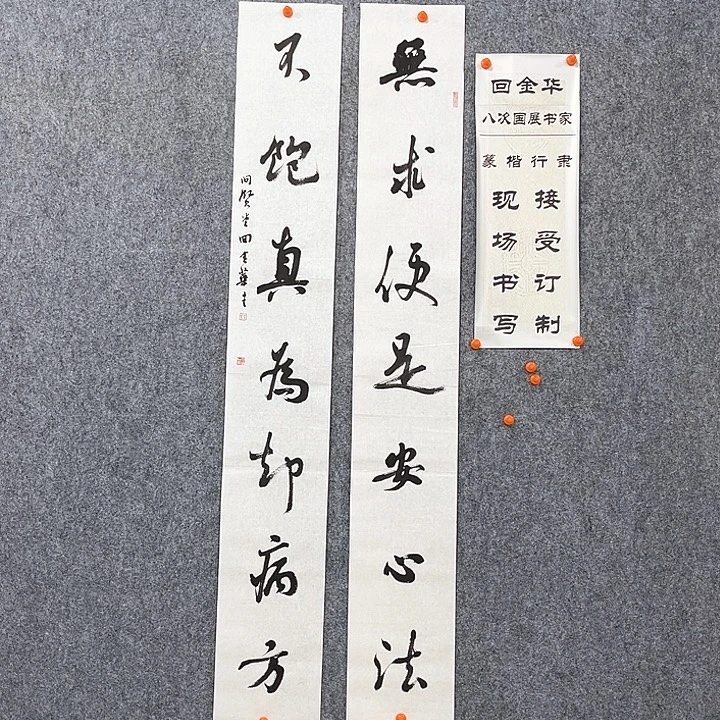 無求便是安心法
不飽真為却病方
問賢堂回金華書
回金华
八次国展书家
篆楷行隶
接受订制
现场书写